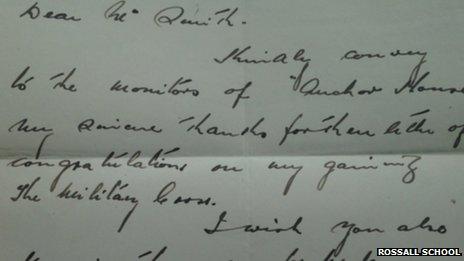 Dear Mr Smith.
Kindly convey
to the monitors of "Anchor House
my sincere thanks for their letter of
congratulations on my gaining
The Military Cross.
I wish you also
ROSSALL SCHOOL